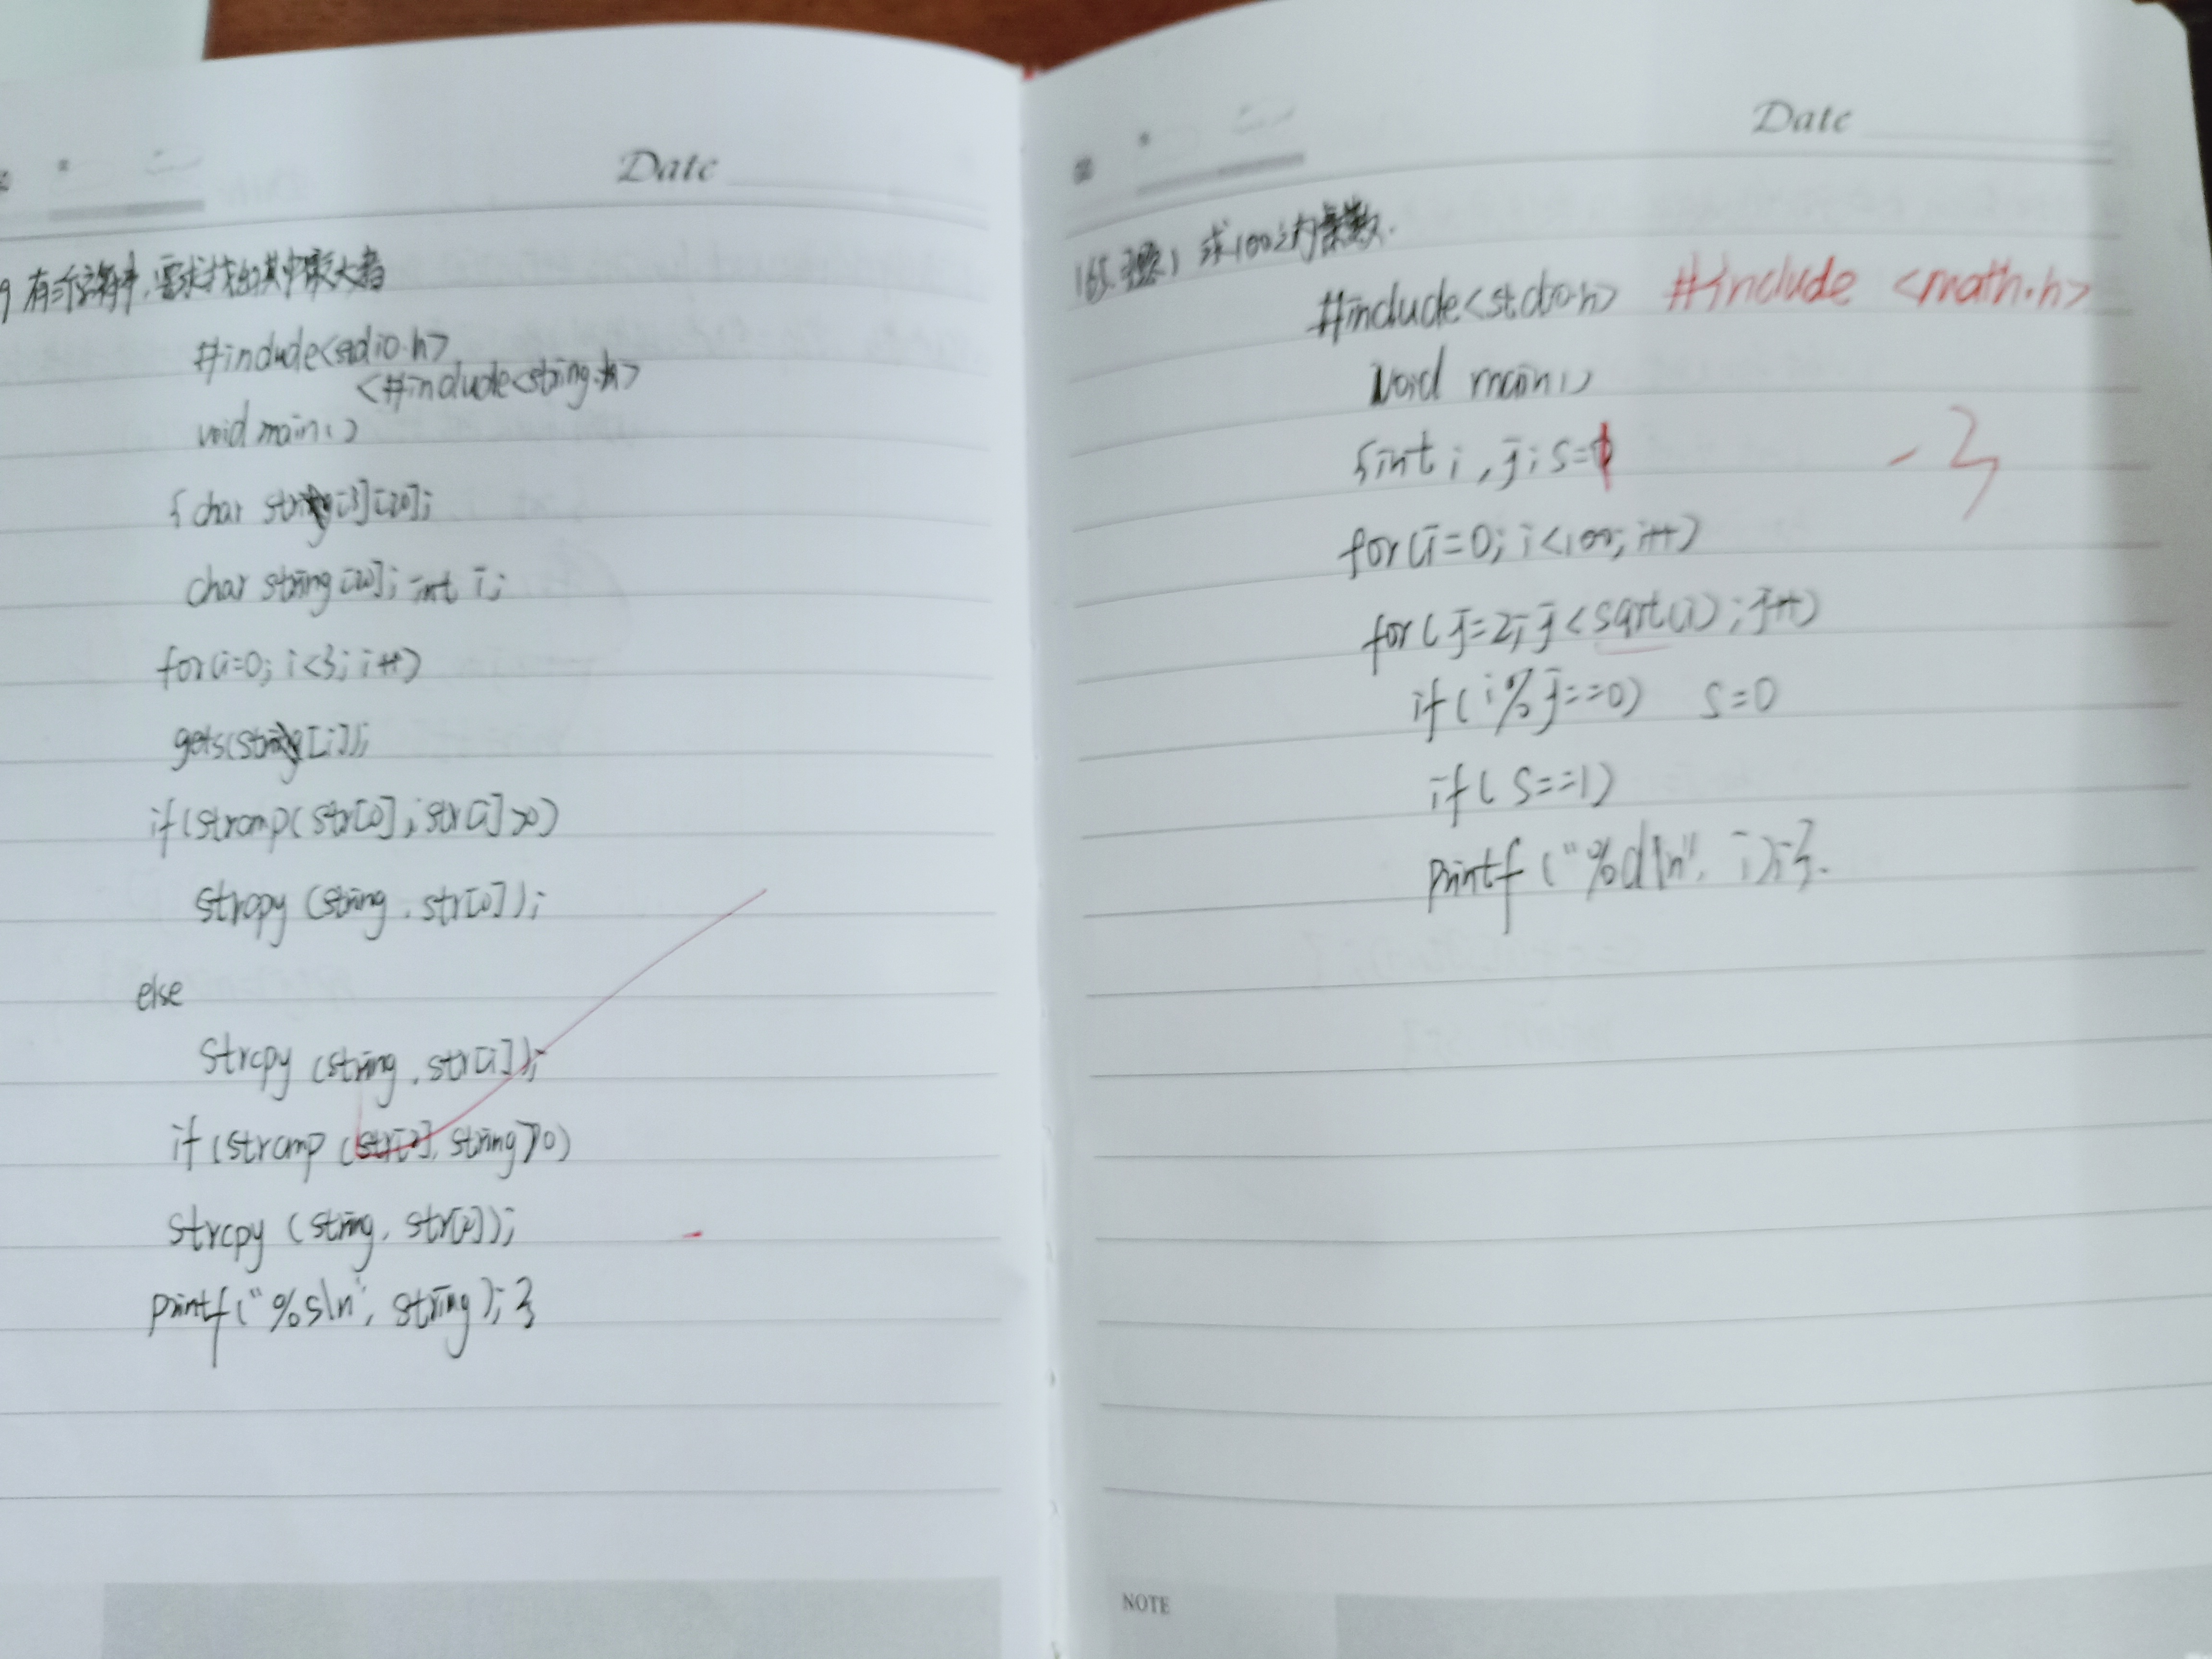 Date
9 有三个字符串,要求找出其中最大者
#include<stdio.h>
<#include<string.h>
void main()
{ char string[3][20];
char string[20]; int i;
for(i=0; i<3; i++)
gets(string[i]);
if(strcmp(str[0];str[1]>0)
strcpy (string, str[0]);
else
strcpy (string, str[1]);
if(strcmp (str[2], string)>0)
strcpy (string, str[2]);
printf("%s\n", string); }
Date
求100之内素数.
#include<stdio.h> #include <math.h>
void main()
{int i, j; s=1
-3
for(i=0; i<100; i++)
for(j=2; j<sqrt(i); j++)
if(i%j==0) s=0
if(s==1)
printf("%d\n", i);}.
NOTE